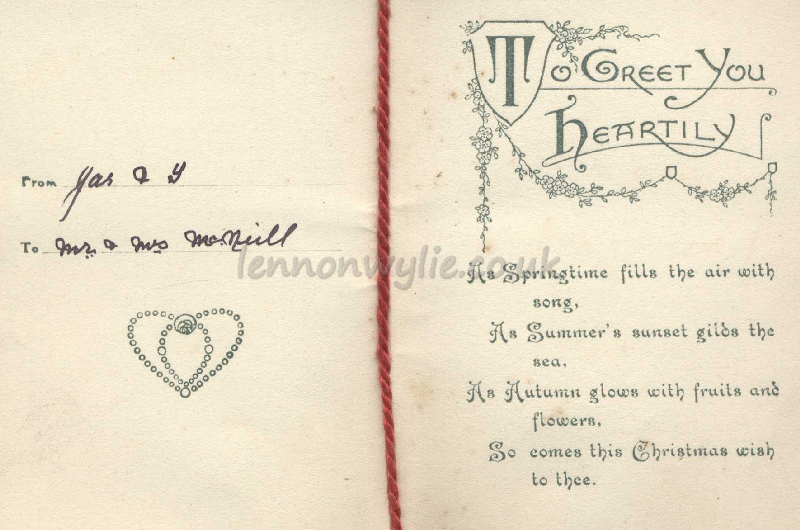 From Jas & G
To Mr. & Mrs McNeill
To Greet You
Heartily
lennonwylie.co.uk
As Springtime fills the air with
song,
As Summer's sunset gilds the
sea,
As Autumn glows with fruits and
flowers,
So comes this Christmas wish
to thee.